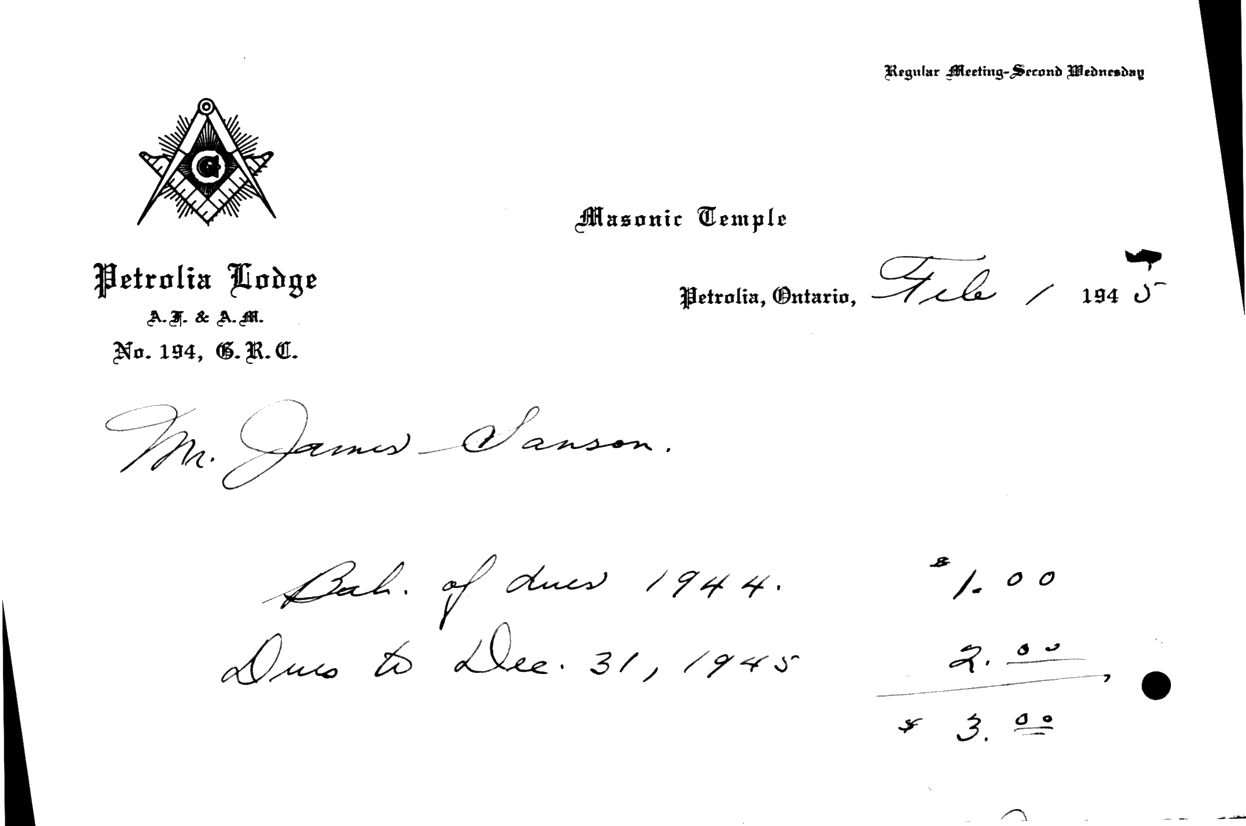 Regular Meeting-Second Wednesday
G
Masonic Temple
Petrolia Lodge
A.F. & A.M.
No. 194, G.R.C.
Petrolia, Ontario, Feb 1 1945
Mr. James Sanson.
Bal. of dues 1944. $1.00
Dues to Dec. 31, 1945 2.00
$ 3.00